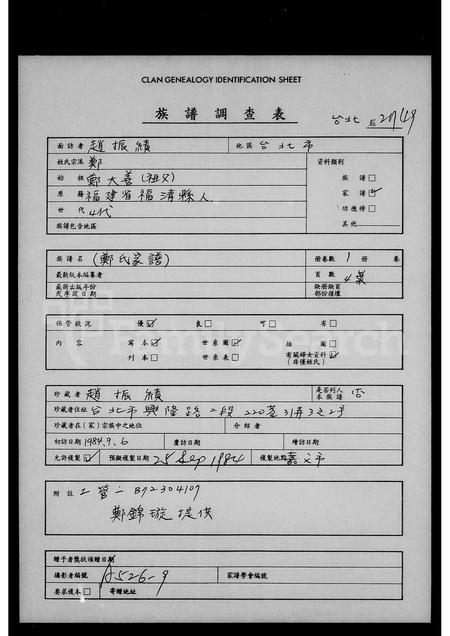 CLAN GENEALOGY IDENTIFICATION SHEET
族譜調查表
台北 2749
面訪者 趙振績 地區 台北市
姓氏宗派 鄭 資料類別
始祖 鄭大善(祖父) 族譜□
原籍 福建省福清縣人 家譜☑
世代 4代 功德榜□
族譜包含地區 其他
族譜名 (鄭氏家譜) 冊卷數 1 冊 卷
最新版本編纂者 頁數 4葉
最新出版年份或序跋日期 缺冊缺頁部份後補
保管狀況 優☑ 良□ 可□ 劣□
內容 寫本☑ 世系圖☑ 插圖□
刊本□ 世系表□ 有關婦女資料☑ (非僅姓氏)
珍藏者 趙振績 是否列入本族譜 否
珍藏者住址 台北市興隆路二段220巷31弄3之2號
珍藏者在(家)宗族中之地位 介紹者
初訪日期 1984.9.6 覆訪日期 增訪日期
允許複製☑ 預擬複製日期 25 Sep 1984 複製地點 嘉义市
附註 B72304107
鄭錦璇提供
贈予者獎狀頒贈日期
攝影者編號 A526-9 家譜學會編號
要求複本□ 寄贈地址
FamilySearch